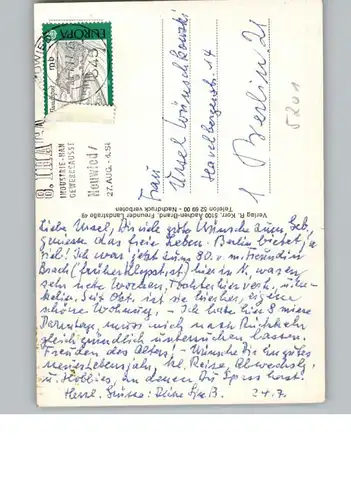 EUROPA
8. IHAGA
INDUSTRIE-HAN
GEWERBEAUSST
Neuwied/
27. AUG. - 4. S
Frau
Ursel Wünschkowski
Havelbergerstr. 14
1 Berlin 21
5201
Verlag R. Kerr, 5100 Aachen-Brand, Freunder Landstraße 49
Telefon 52 69 00 - Nachdruck verboten
Liebe Ursel, Dir viele gute Wünsche zum Geb,
geniesse das freie Leben. Berlin bietet ja
viel! Ich war jetzt zum 80. v. m. Freundin
(früher Klopstockst) hier in N., waren
sehr nette Wochen, Tochter hier verh. u.
Seit Okt. ist sie hier, eigene
schöne Wohnung, - Ich habe hier
muss mich nach Rückkehr
gleich gründlich untersuchen lassen.
Freuden des Alters, - Wünsche Dir ein gutes
neues Lebensjahr, viel Reisen, Abwechslg,
u. Hobbies, an denen Du Spass hast.
Herzl. Grüsse: Deine B. 24.7.